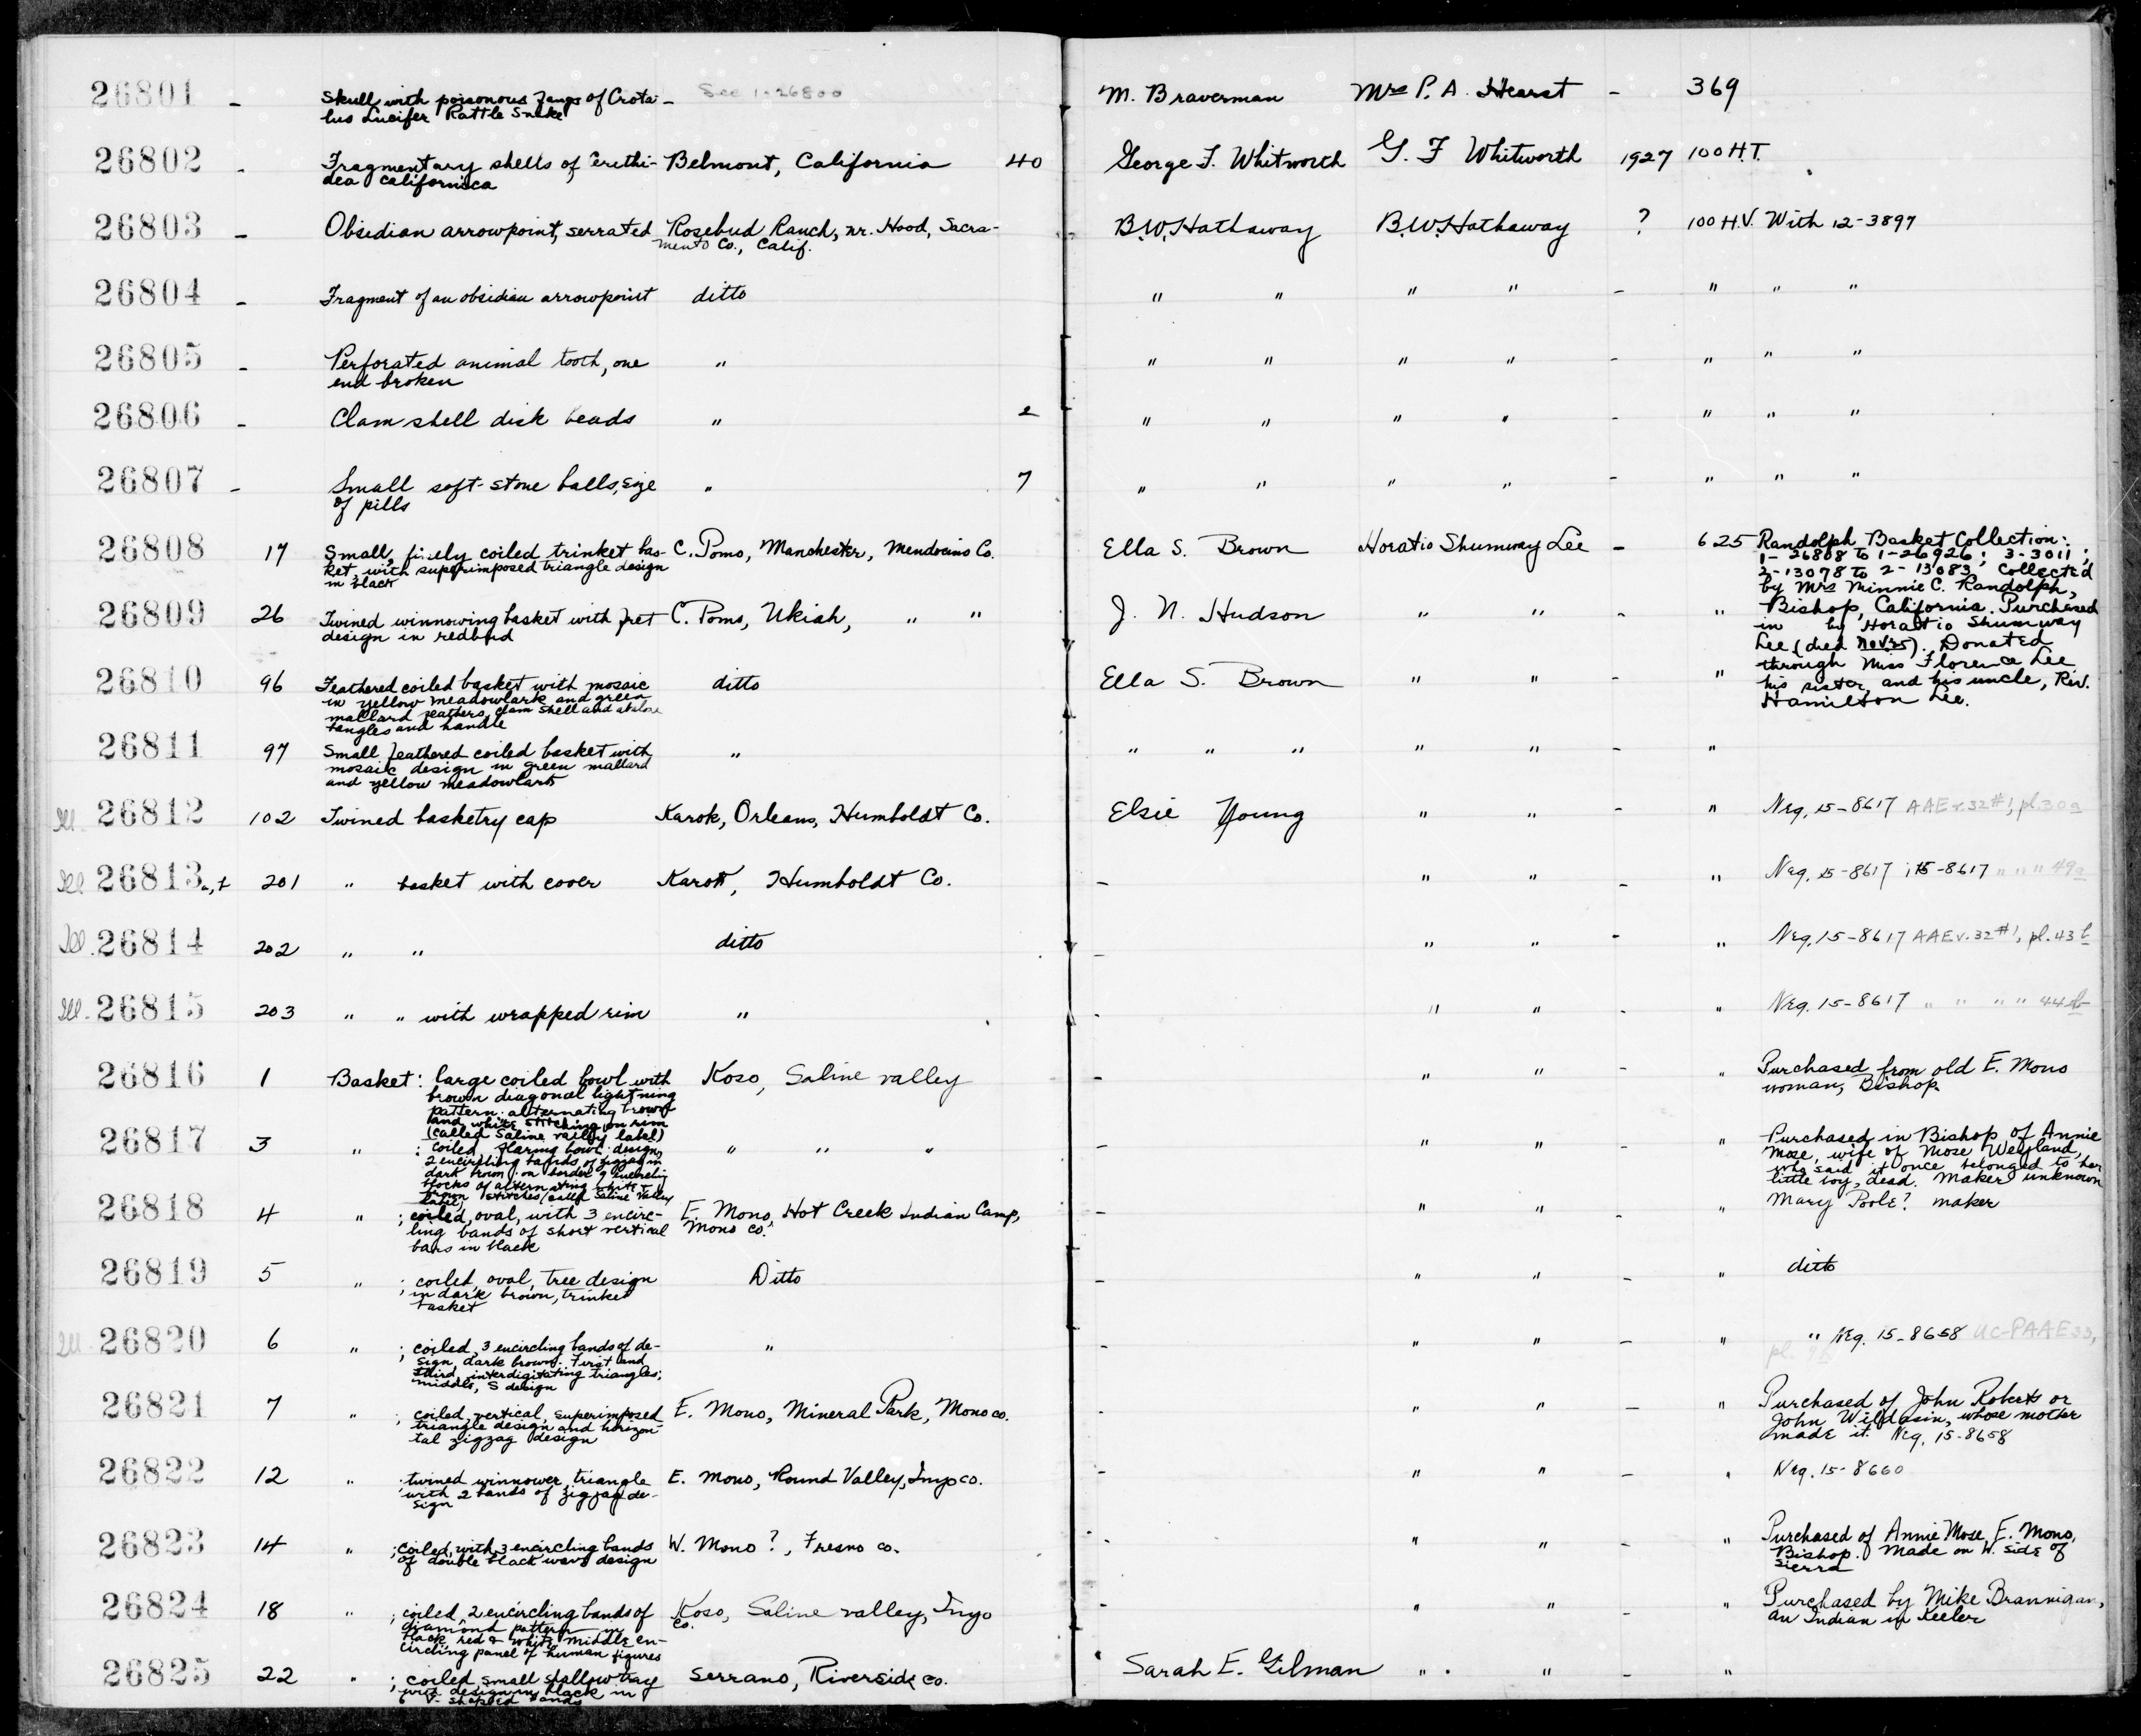 26801 - Skull, with poisonous fangs of Crota- See 1-26800 M. Braverman Mrs P. A. Hearst - 369
lus Lucifer Rattle Snake
26802 - Fragmentary shells of Cerithi- Belmont, California 40 George F. Whitworth G. F Whitworth 1927 100 H.T.
dea californica
26803 - Obsidian arrowpoint, serrated Rosebud Ranch, nr. Hood, Sacra- B.W. Hathaway B.W. Hathaway ? 100 H.V. With 12-3897
mento Co., Calif.
26804 - Fragment of an obsidian arrowpoint ditto " " " " - " " "
26805 - Perforated animal tooth, one " " " " " - " " "
end broken
26806 - Clam shell disk beads " 2 " " " " - " " "
26807 - Small soft-stone balls, size " 7 " " " " - " " "
of pills
26808 17 Small, finely coiled trinket bas- C. Pomo, Manchester, Mendocino Co. Ella S. Brown Horatio Shumway Lee - 625 Randolph Basket Collection:
ket, with superimposed triangle design
in black
1-26808 to 1-26926; 3-3011;
2-13078 to 2-13083. Collected
by Mrs Minnie C. Randolph,
26809 26 Twined winnowing basket with fret C. Pomo, Ukiah, " " J. N. Hudson " " - " Bishop, California. Purchased
design in redbud
in by Horatio Shumway
Lee (died Nov 25). Donated
through Miss Florence Lee
26810 96 Feathered coiled basket with mosaic ditto Ella S. Brown " " - " his sister, and his uncle, Rev.
in yellow meadowlark and green
mallard feathers, clam shell and abalone
tangles and handle
Hamilton Lee.
26811 97 Small feathered coiled basket with " " " " " " - "
mosaic design in green mallard
and yellow meadowlark
Ill. 26812 102 Twined basketry cap Karok, Orleans, Humboldt Co. Elsie Young " " - " Neg. 15-8617 AAE v.32 #1, pl.30a
Ill 26813 201 " basket with cover Karok, Humboldt Co. - " " - " Neg. 15-8617; 15-8617 " " " 49a
Ill. 26814 202 " " ditto - " " - " Neg. 15-8617 AAE v.32 #1, pl.43b
Ill. 26815 203 " " with wrapped rim " - " " - " Neg. 15-8617 " " " " 44b
26816 1 Basket: large coiled bowl with Koso, Saline valley - " " - " Purchased from old E. Mono
brown diagonal lightning
pattern. alternating brown
and white stitching on rim
(called Saline valley label)
woman, Bishop
26817 3 " : coiled, flaring bowl. design, " " " - " " - " Purchased in Bishop of Annie
2 encircling bands of zigzag in
dark brown. on border 9 encircling
blocks of alternating white &
brown stitches (called Saline Valley
label)
Mose, wife of Mose Weyland,
who said it once belonged to her
little boy, dead. Maker unknown
26818 4 " ; coiled, oval, with 3 encirc- E. Mono, Hot Creek Indian Camp, - " " - " Mary Poole? maker
ling bands of short vertical Mono co.
bars in black
26819 5 " ; coiled, oval, tree design Ditto - " " - " ditto
in dark brown, trinket
basket
Ill 26820 6 " ; coiled, 3 encircling bands of de- " - " " - " " Neg. 15-8658 UC-PAAE 33,
sign dark brown. First and
third, interdigitating triangles;
middle, S design
pl.
26821 7 " ; coiled, vertical, superimposed E. Mono, Mineral Park, Mono co. - " " - " Purchased of John Roberts or
triangle design and horizon-
tal zigzag design
John Wildasin, whose mother
made it. Neg. 15-8658
26822 12 " ; twined winnower, triangle E. Mono, Round Valley, Inyo co. - " " - " Neg. 15-8660
with 2 bands of zigzag de-
sign
26823 14 " ; coiled, with 3 encircling bands W. Mono?, Fresno co. - " " - " Purchased of Annie Mose, E. Mono,
of double black wave design
Bishop. Made on W. side of
Sierra
26824 18 " ; coiled, 2 encircling bands of Koso, Saline valley, Inyo - " " - " Purchased by Mike Brannigan,
diamond pattern in co.
black, red & white. middle en-
circling panel of human figures
an Indian in Keeler
26825 22 " ; coiled, small shallow tray Serrano, Riverside co. Sarah E. Gilman " " - "
with design in black in
6 V-shaped bands